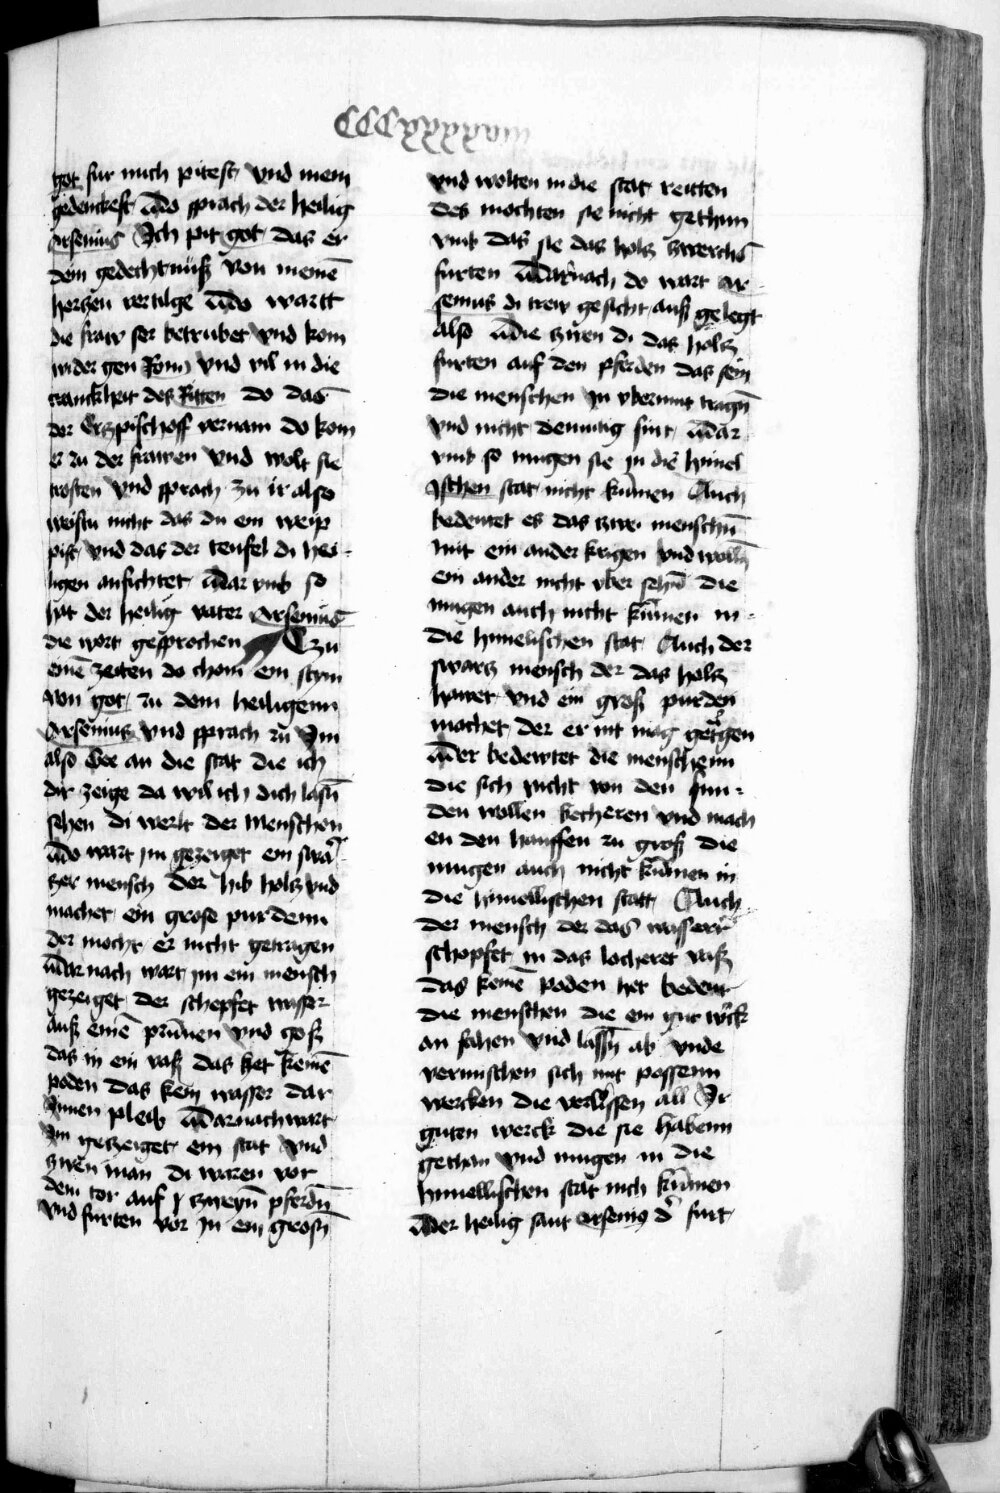 CCCxxxxviij
got fur mich pitest vnd mein
gedenckest Do sprach der heilig
Arsenius Ich pit got das er
dein gedechtnuß von meinē
herczen vertilge Do wartt
die fraw ser betrubet vnd kom
wider gen Rom vnd vil in die
kranckheit des Ritten do das
der Erczpischoff vernam do kom
er zu der frawen vnd wolt sie
trosten vnd sprach zu ir also
weistu nicht das du ein weip
pist vnd das der teufel di hei-
ligen anfichtet Dar vmb so
hat der heilig vater Arsenius
die wort gesprochen Czu
einē zeiten do chom ein stym
von got zu dem heiligenn
Arsenius vnd sprach zu Im
also Gee an die stat die ich
dir zeige da wil ich dich lasn̄
sehen di werk der Menschen
Do wart jm gezeiget ein swar
czer mensch der hib holcz vnd
machet ein grose purdenn
der mocht er nicht getragen
Dar nach wart jm ein mensch
gezeiget der schepfet wasser
auß einē prūnen vnd goß
das in ein vaß das het keinē
poden das kein wasser dar
Innen pleib Darnach wart
Im geczeiget ein stat vnd
zwen man di waren vor
dem tor auf czweyn̄ pferdn̄
vnd furten vor in ein grosn̄
vnd wolten in die stat reitten
des mochten sie nicht gethun
vmb das sie das holcz zwerchs
furten Darnach do wart Ar-
senius di trew gesicht auß gelegt
also Die zwen di das holcz
furten auf den pferden das sein
die menschen in vbermut tragn̄
vnd nicht demutig sint Dar
vmb so mugen sie in die himel
Ischen stat nicht kūmen Auch
bedeutet es das zwei menschn̄
mit ein ander krigen vnd wolln̄
ein ander nicht vber sehn̄ die
mugen auch nicht kūmen in
die himelischen stat Auch der
swarcz mensch der das holcz
hawet vnd ein groß purden
machet der er nit mag getragen
Der bedewtet die menschenn
die sich nicht von den sun-
den wollen kecheren vnd mach
en den hauffen zu groß die
mugen auch nicht kūmen in
die himellischen statt Auch
der mensch der das wasserr
schopfet in das locheret vaß
das keinē poden het bedeut
die menschen die ein gut werck
an fahen vnd lassn̄ ab vnde
vermischen sich mit possenn
wercken die verlissen all Ir
guten werck die sie habenn
gethan vnd mugen in die
himellischen stat nich kūmen
Der heilig sant Arsenius d' furt